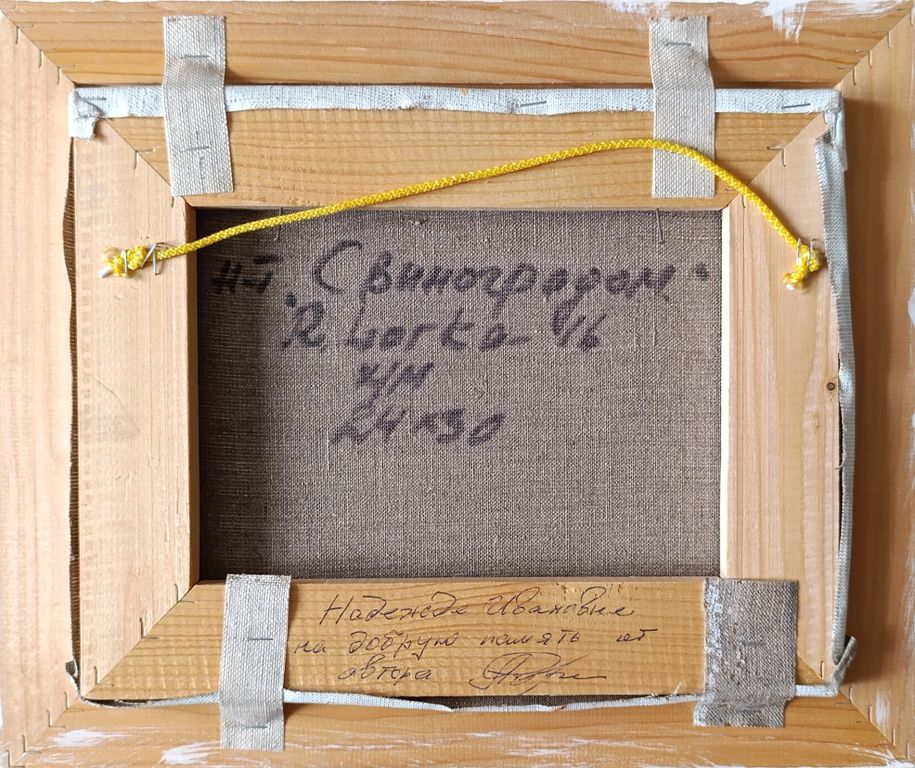 н-т "С виноградом"
R work a- 16
х/м
24 х 30
Надежде Ивановне
на добрую память от
автора